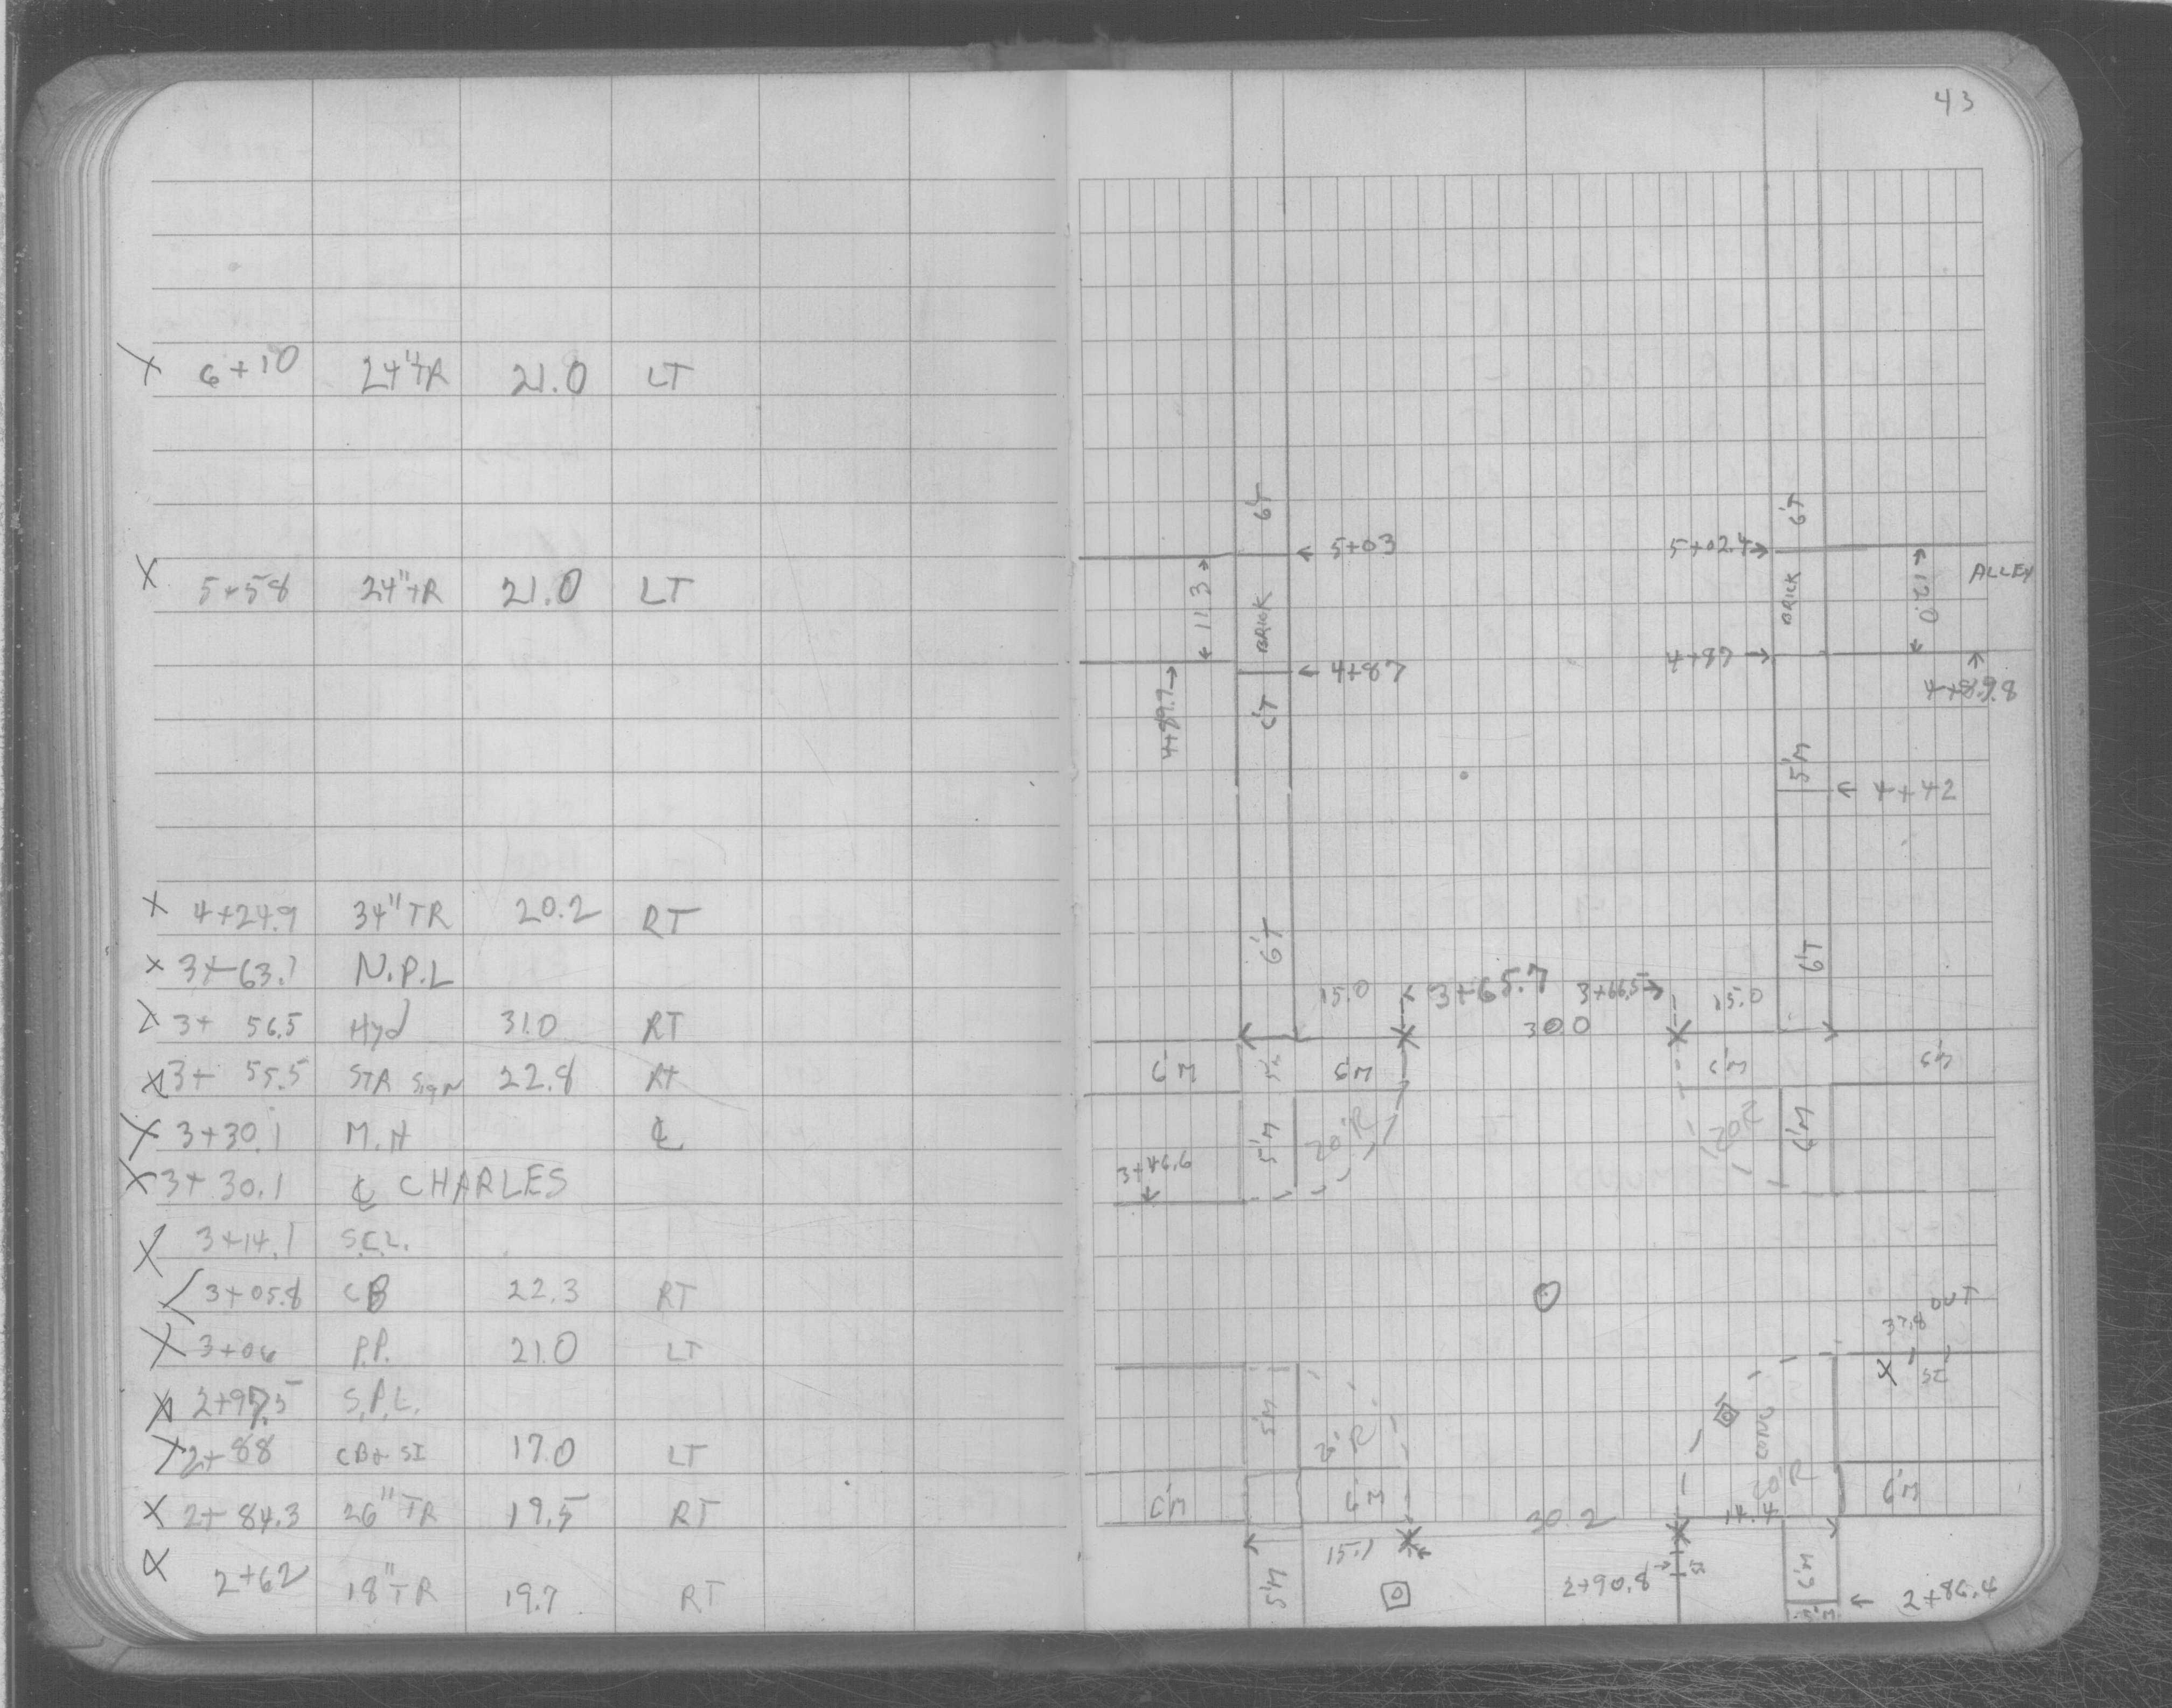 43
X 6+10 24" TR 21.0 LT
X 5+58 24" TR 21.0 LT
X 4+24.9 34" TR 20.2 RT
X 3+63.1 N.P.L
X 3+ 56.5 Hyd 31.0 RT
X 3+ 55.5 STR Sign 22.8 RT
X 3+30.1 M.H ℄
X 3+30.1 ℄ CHARLES
X 3+14.1 S.C.L.
3+05.8 CB 22.3 RT
X 3+06 P.P. 21.0 LT
X 2+97.5 S.P.L.
X 2+88 CB+ SI 17.0 LT
X 2+84.3 26" TR 19.5 RT
X 2+62 18" TR 19.7 RT
6'T 6'T
← 5+03 5+02.4→
11.3 BRICK BRICK 12.0 ALLEY
← 4+87 4+87 →
4+89.7→ 6'T 4+89.8
5'M
← 4+42
6'T 6'T
15.0 ← 3+65.7 3+66.5→ 15.0
30.0
6'M 6'M 6'M 6'M
5'M 20'R 20'R 6'M
3+46.6
OUT
37.8
X SI
5'M 20'R CONC 20'R
6'M 6'M 6'M
30.2 14.4
15.1
5'M 2+90.8→ SI 6'M
5'M ← 2+86.4